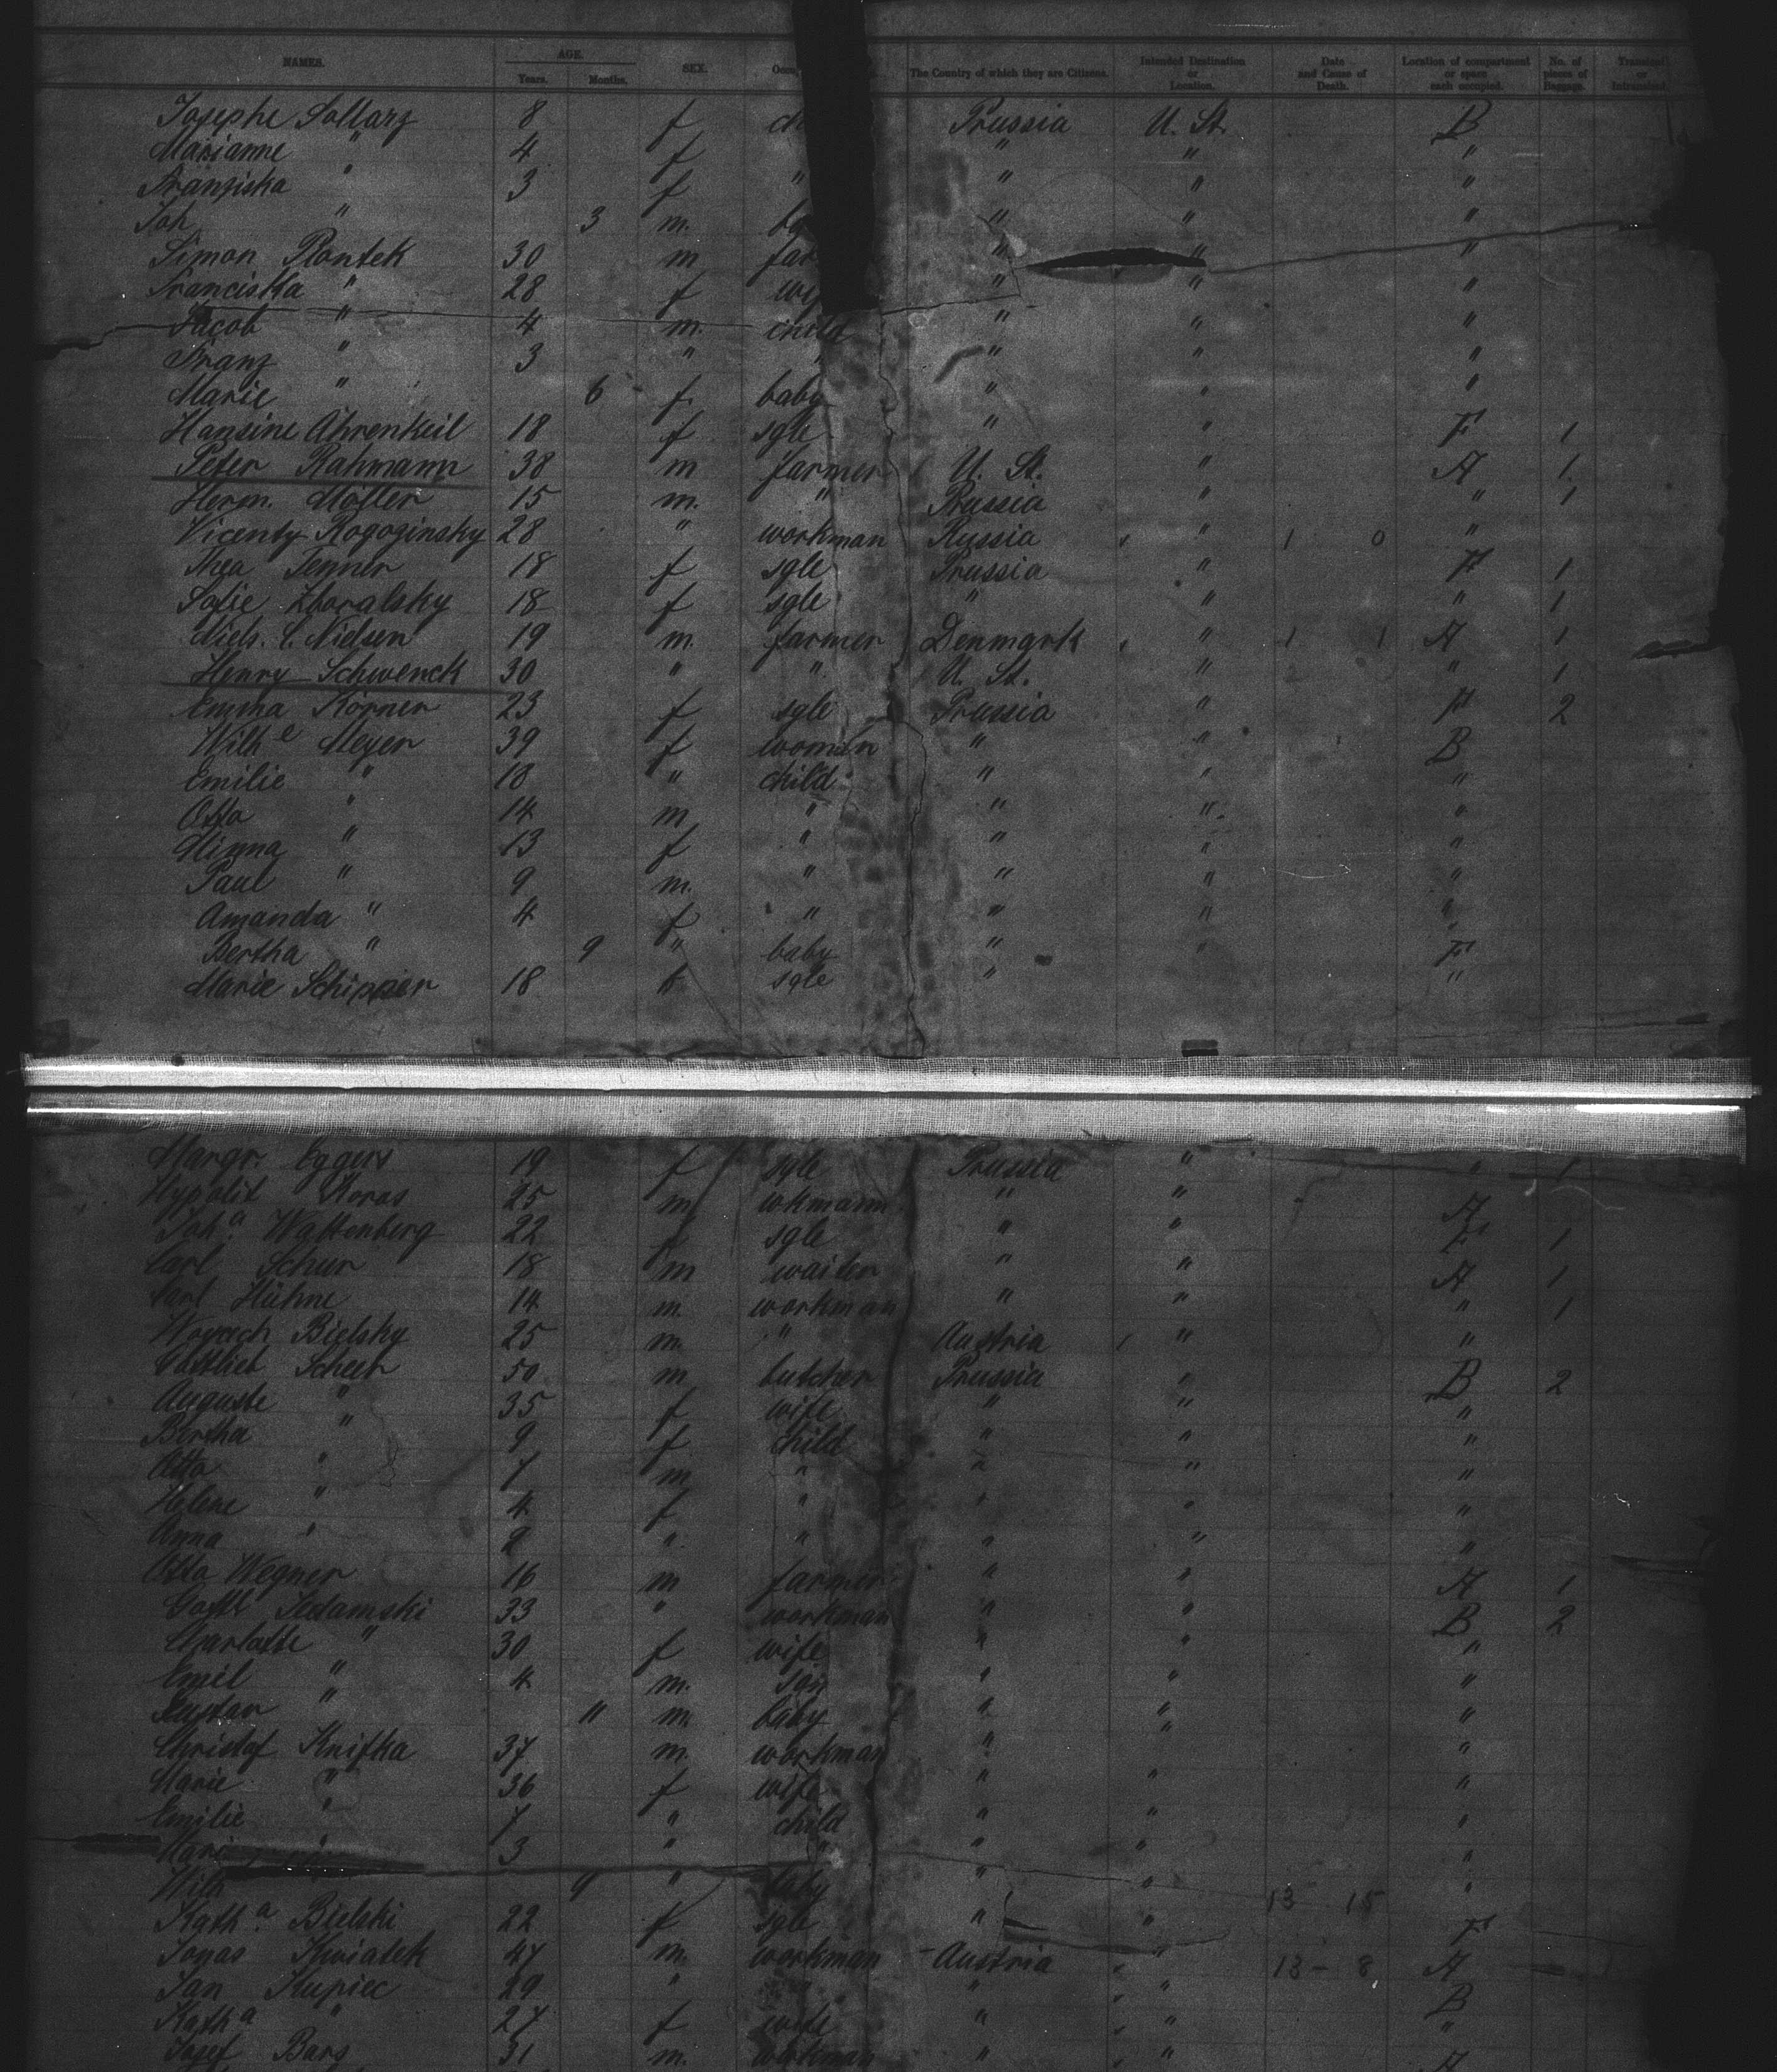 NAMES. AGE. Years. Months. SEX. The Country of which they are Citizens. Intended Destination or Location. Date and Cause of Death. Location of compartment or space each occupied. No. of pieces of Baggage.
Josephe Sollarz 8 f Prussia U. St. B
Marianne " 4 f " " "
Franziska " 3 f " " " "
Joh " 3 m. " " "
Simon Plontek 30 m " " "
Franciska " 28 f " " "
Jacob " 4 m. child " " "
Franz " 3 " " " " "
Marie " 6 f. baby " " "
Hansine Ahrenkeil 18 f sgle " " F 1
Peter Rahmann 38 m farmer U. St. " A 1.
Herm. Möller 15 m. " Prussia " " 1
Vicenty Rogoginsky 28 " workman Russia " 1 0 "
Thea Tenner 18 f sgle Prussia " F 1
Sofie 18 f sgle " " " 1
Niels. C. Nielsen 19 m. farmer Denmark " 1 1 A 1
Henry Schwenck 30 " " U. St. " " 1
Emma Körner 23 f sgle Prussia " F 2
Wilhe Meyer 39 f woman " " B
Emilie " 18 " child " " "
Otto " 14 m " " " "
Minna " 13 f " " " "
Paul " 9 m. " " " "
Amanda " 4 f " " " "
Bertha " 9 " baby " " F
Marie Schipper 18 f sgle " "
Margr. Eggers 19 f sgle Prussia " " 1
Hypolit 25 m wkmann " " A
Joha Wattenberg 22 f sgle " " F 1
Carl Schur 18 m waiter " " A 1
Carl Hühne 14 m. workman " " " 1
Bielsky 25 m. " Austria " "
Gottlieb Scheer 50 m butcher Prussia " B 2
Auguste " 35 f wife " " "
Bertha " 9 f child " " "
Otto " 7 m " " " "
Helene " 4 f " " " "
Anna " 2 " " " " "
Otto Wegner 16 m farmer " " A 1
Gottl Adamski 33 " workman " " B 2
Charlotte " 30 f wife " " "
Emil " 4 m. son " " "
Gustav " 11 m. baby " " "
Christof Knifka 37 m. workman " " "
Marie " 36 f wife " " "
Emilie " 7 " child " " "
Marie " 3 " " " " "
Wilh 9 " baby " " 13 15 "
Katha Bielski 22 f sgle " " F
Jonas Kwiatek 47 m. workman Austria " 13 - 8 A
Jan Kupiec 29 " " " " B
Katha " 27 f wife " " "
Josef Bars 31 m. workman " " A